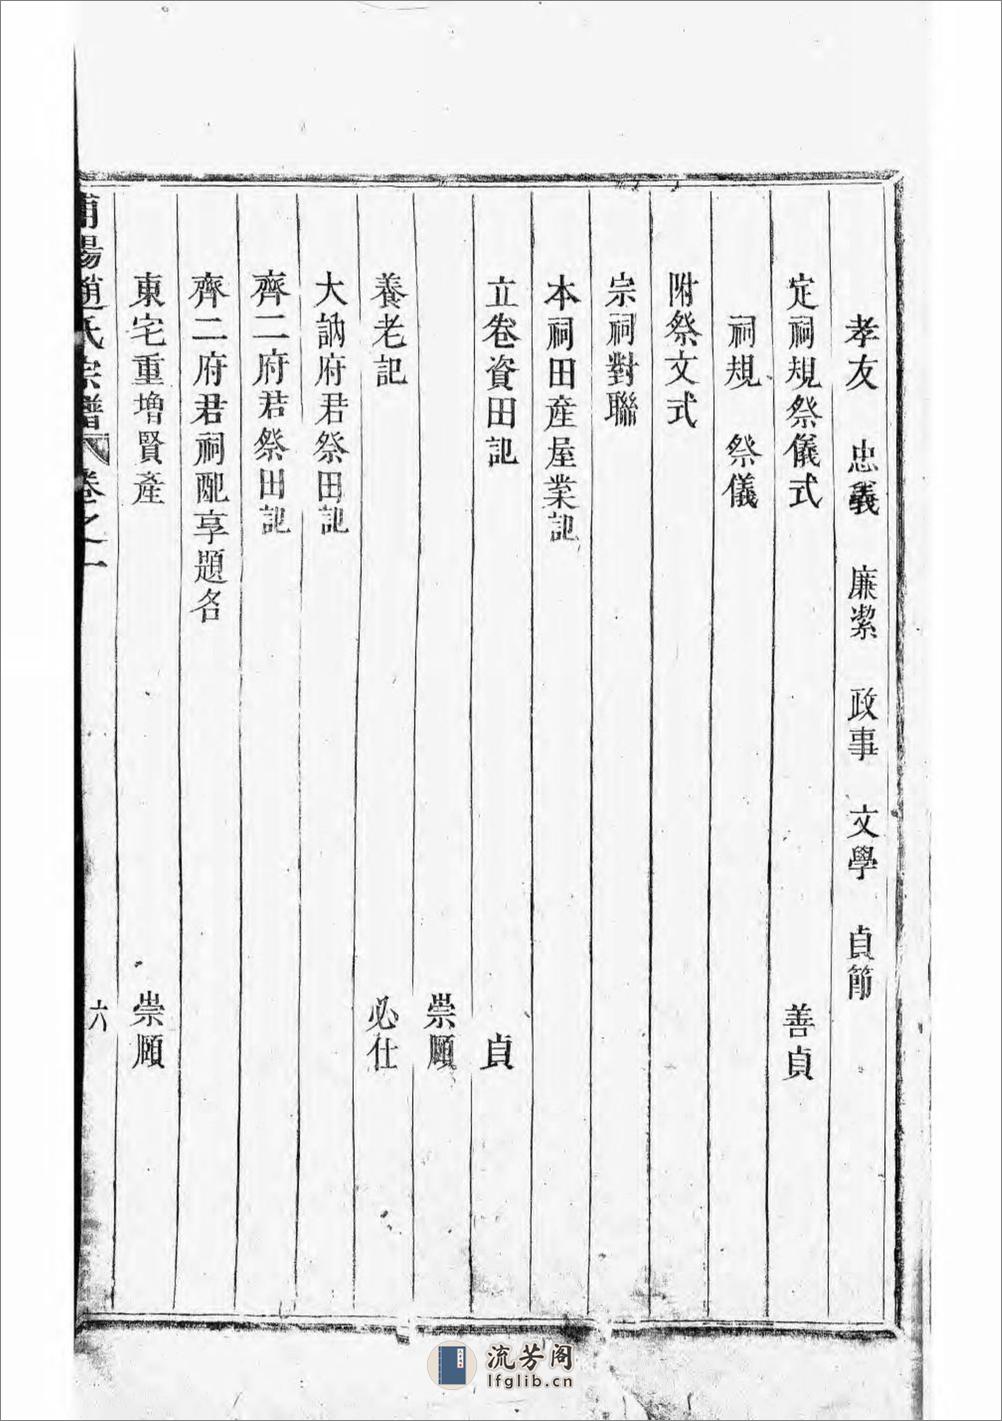 孝友　忠義　廉潔　政事　文學　貞節
定祠規祭儀式　善貞
祠規　祭儀
附祭文式
宗祠對聯
本祠田產屋業記
立卷資田記　貞
崇頋
養老記　必仕
大訥府君祭田記
齊二府君祭田記
齊二府君祠配享題名
東宅重增賢產　崇頋
浦陽趙氏宗譜　卷之一　六
流芳阁
lfglib.cn